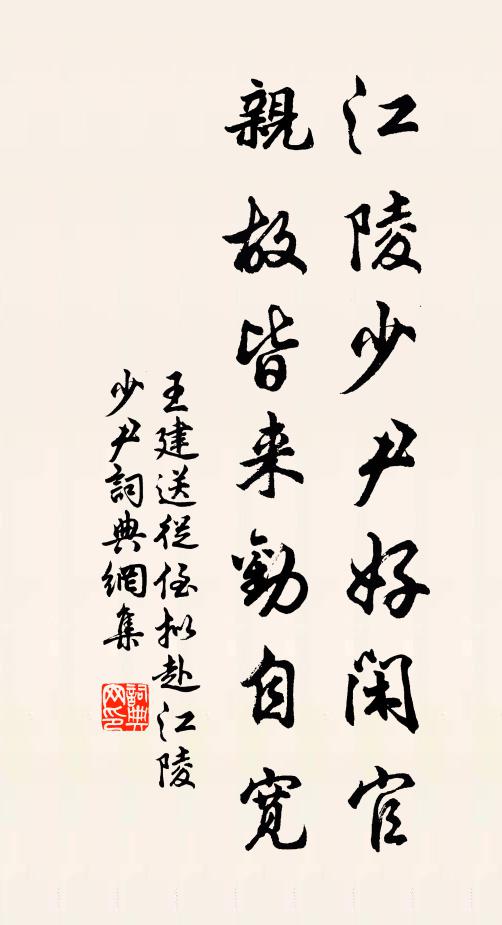 江陵少尹好閑官
親故皆来勸自寬
王建送從侄拟赴江陵
少尹詞典網集
詞典
网印